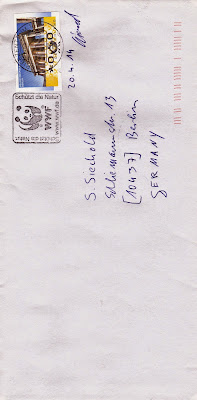 20.4.14
Schützt die Natur
WWF
www.wwf.de
Schützt die Natur
S. Siechold
Schliemannstr. 13
[10437] Berlin
GERMANY